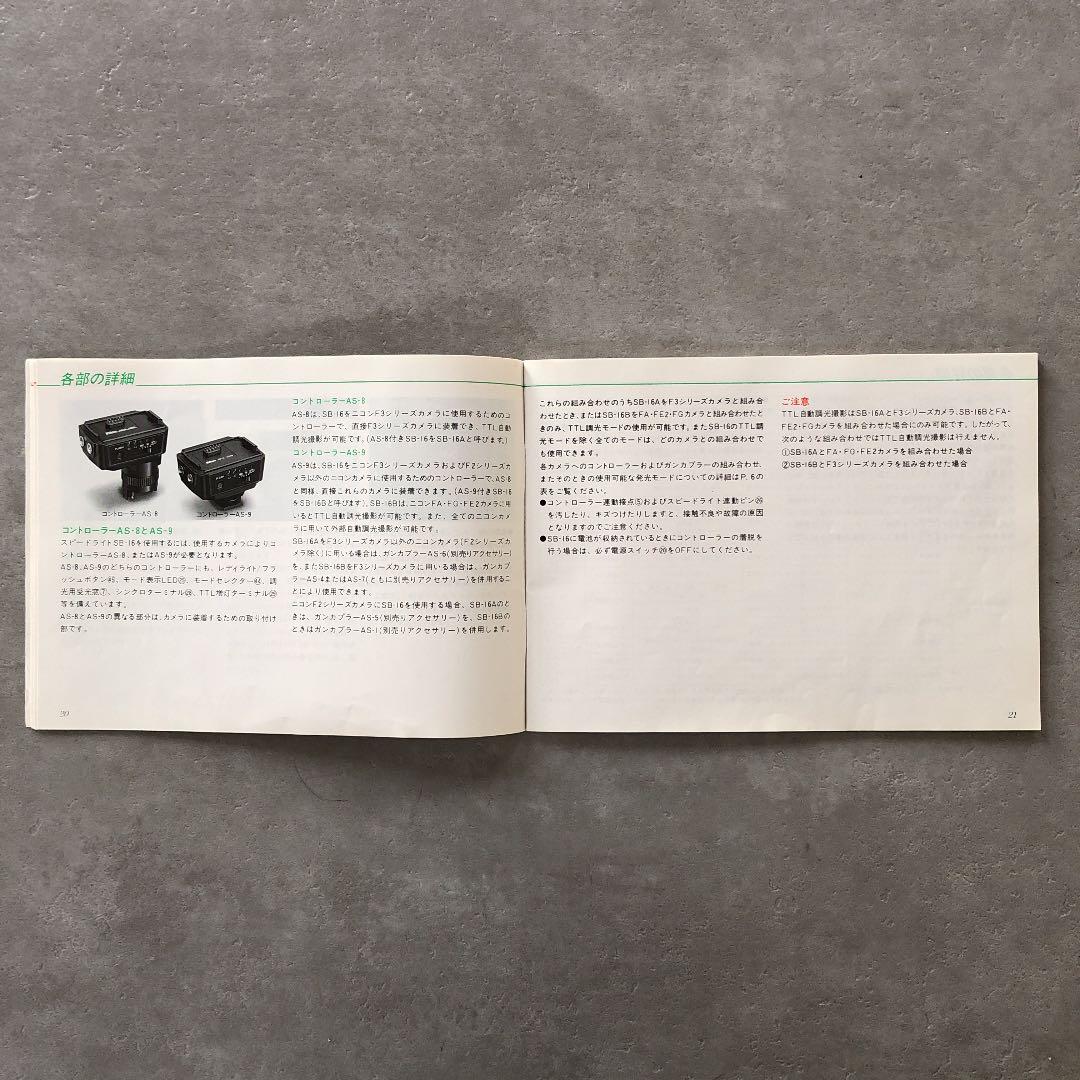 各部の詳細
コントローラーAS-8
コントローラーAS-9
コントローラーAS-8とAS-9
スピードライトSB-16を使用するには、使用するカメラによりコ
ントローラーAS-8、またはAS-9が必要となります。
AS-8、AS-9のどちらのコントローラーにも、レディライト/フラ
ッシュボタン、モード表示LED、モードセレクター、調
光用受光窓⑦、シンクロターミナル、TTL増灯ターミナル
等を備えています。
AS-8とAS-9の異なる部分は、カメラに装着するための取り付け
部です。
20
コントローラーAS-8
AS-8は、SB-16をニコンF3シリーズカメラに使用するためのコ
ントローラーで、直接F3シリーズカメラに装着でき、TTL自動
調光撮影が可能です。(AS-8付きSB-16をSB-16Aと呼びます。)
コントローラーAS-9
AS-9は、SB-16をニコンF3シリーズカメラおよびF2シリーズカ
メラ以外のニコンカメラに使用するためのコントローラーで、AS-8
と同様、直接これらのカメラに装着できます。(AS-9付きSB-16
をSB-16Bと呼びます)。SB-16Bは、ニコンFA・FG・FE2カメラに用
いるとTTL自動調光撮影が可能です。また、全てのニコンカメ
ラに用いて外部自動調光撮影が可能です。
SB-16AをF3シリーズカメラ以外のニコンカメラ(F2シリーズカ
メラ除く)に用いる場合は、ガンカプラーAS-6(別売りアクセサリー)
を、またSB-16BをF3シリーズカメラに用いる場合は、ガンカプ
ラーAS-4またはAS-7(ともに別売りアクセサリー)を併用するこ
とにより使用できます。
ニコンF2シリーズカメラにSB-16を使用する場合、SB-16Aのと
きは、ガンカプラーAS-5(別売りアクセサリー)を、SB-16Bの
ときはガンカプラーAS-1(別売りアクセサリー)を併用します。
これらの組み合わせのうちSB-16AをF3シリーズカメラと組み合
わせたとき、またはSB-16BをFA・FE2・FGカメラと組み合わせたと
きのみ、TTL調光モードの使用が可能です。またSB-16のTTL調
光モードを除く全てのモードは、どのカメラとの組み合わせで
も使用できます。
各カメラへのコントローラーおよびガンカプラーの組み合わせ、
またそのときの使用可能な発光モードについての詳細はP. 6の
表をご覧ください。
●コントローラー連動接点⑤およびスピードライト連動ピン㉖
を汚したり、キズつけたりしますと、接触不良や故障の原因
となりますのでご注意ください。
●SB-16に電池が収納されているときにコントローラーの着脱を
行う場合は、必ず電源スイッチ⑳をOFFにしてください。
ご注意
TTL自動調光撮影はSB-16AとF3シリーズカメラ、SB-16BとFA・
FE2・FGカメラを組み合わせた場合にのみ可能です。したがって、
次のような組み合わせではTTL自動調光撮影は行えません。
①SB-16AとFA・FG・FE2カメラを組み合わせた場合
②SB-16BとF3シリーズカメラを組み合わせた場合
21